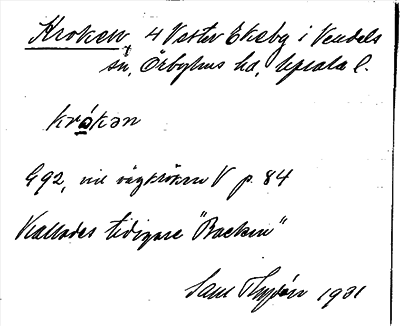 Kroken, 4 Vester Ekeby i Vendels
sn, Örbyhus hd, Upsala l.
krókən
G92, vid vägkröken V p. 84
Kallades tidigare "Backen"
Sam 1931